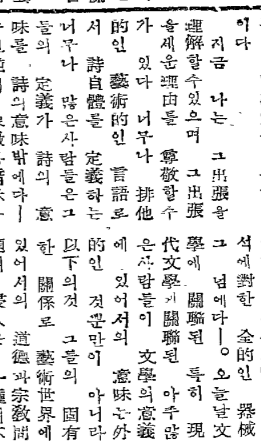 이다
지금 나는 그出張을
理解할수있으며 그出張
을세운理由를 尊敬할수
가 있다 너무나 排他
的인 藝術的인 言語로
서 詩自體를 定義하는
너무나 많은사람들은그
들의 定義가 詩의 意
味를 詩의意味밖에다—
석에對한 全的인 器械
그 넘에다—。오늘날文
學에 關聯된 特히 現
代文學게關聯된 아주많
은사람들이 文學의意義
에 있어서의 意味는外
的인 것뿐만이 아니라
以下의것 그들의 固有
한 關係로 藝術世界에
있어서의 道德과宗敎問